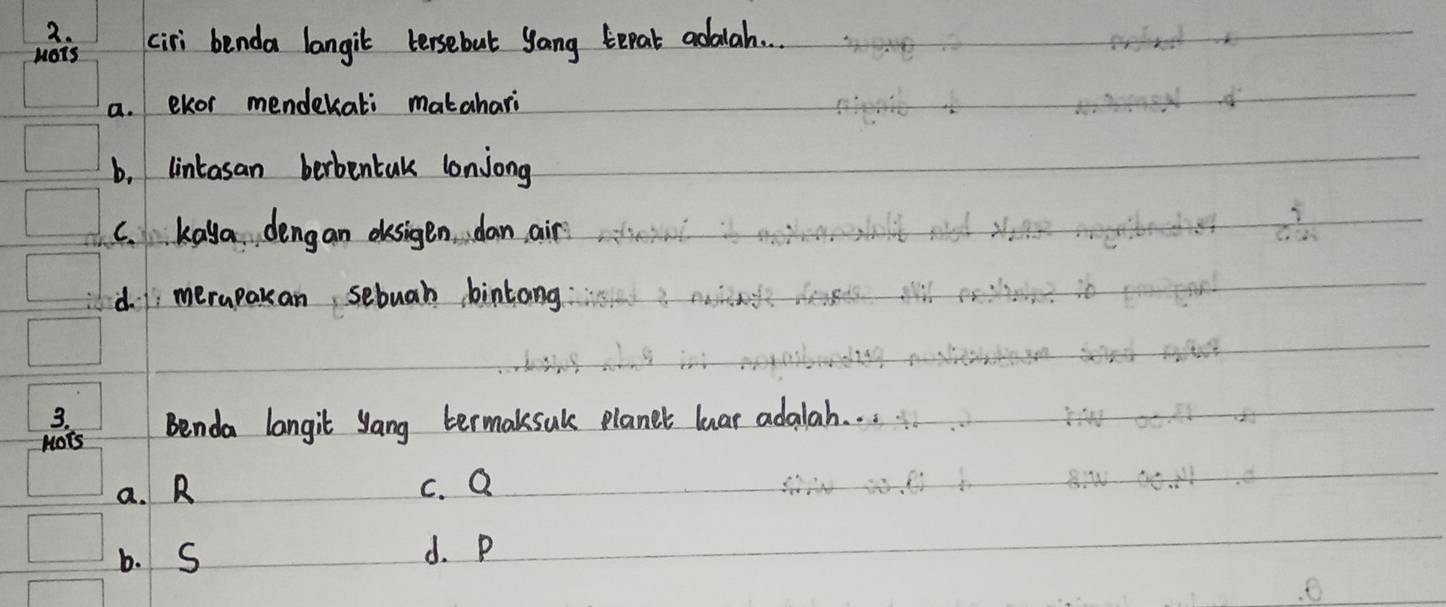 2. ciri benda langit tersebut yang tepat adalah...
HOTS
a. ekor mendekati matahari
b. lintasan berbentuk lonjong
c. kaya dengan oksigen dan air
d. merupakan sebuah bintang
3. Benda langit yang termaksuk planet luar adalah...
HOTS
a. R c. Q
b. S d. P